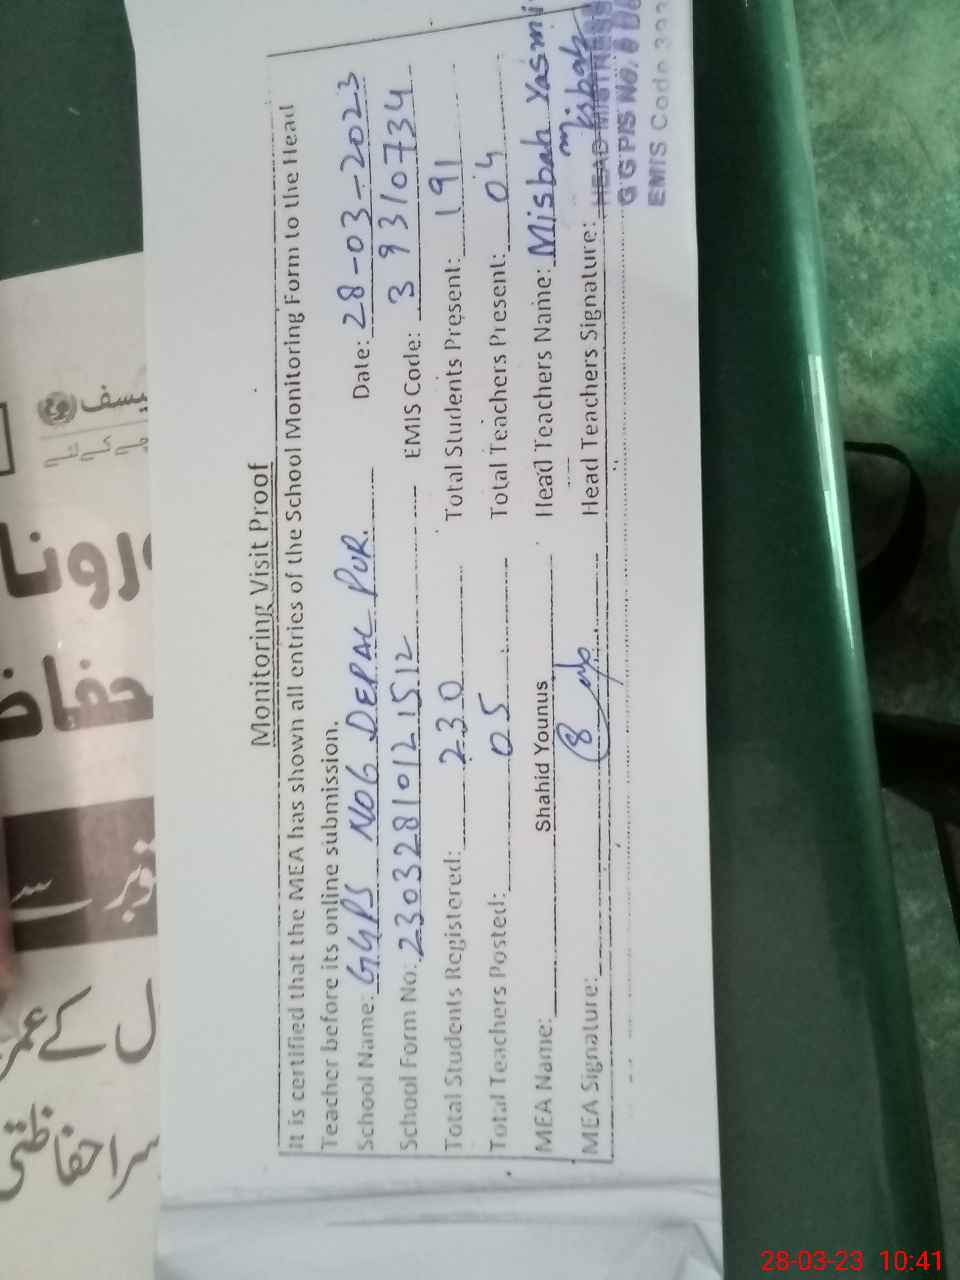 Monitoring Visit Proof
It is certified that the MEA has shown all entries of the School Monitoring Form to the Head
Teacher before its online submission.
School Name: GGPS NO6 DEPAL PUR. Date: 28-03-2023
School Form No: 23032810121512 EMIS Code: 39310734
Total Students Registered: 230 Total Students Present: 191
Total Teachers Posted: 05 Total Teachers Present: 04
MEA Name: Shahid Younus Head Teachers Name: Misbah Yasmi
MEA Signature: Head Teachers Signature: Misbah
HEAD MISTRESS
EMIS Code
رونا
حفاظ
سے
ل کے عمر
28-03-23 10:41